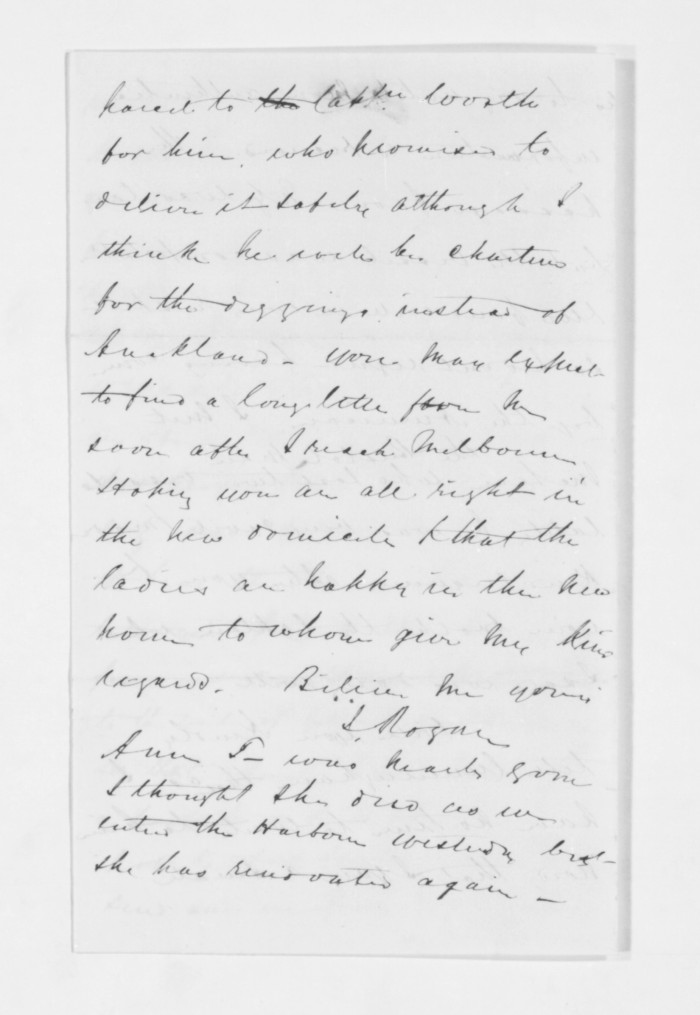 parcel to ~~the~~ Captn Worth
for him, who promises to
deliver it safely although I
think he will be charterd
for the diggings instead of
Auckland – you may expect
to find a long letter from me
soon after I reach Melbourne
Hoping you are all right in
the new domicile & that the
ladies are happy in their new
home to whom give my kind
regards. Believe me yours
J. Rogan
Ann T– was nearly gone
I thought she died as we
enterd the Harbour yesterday but
she has renovated again –